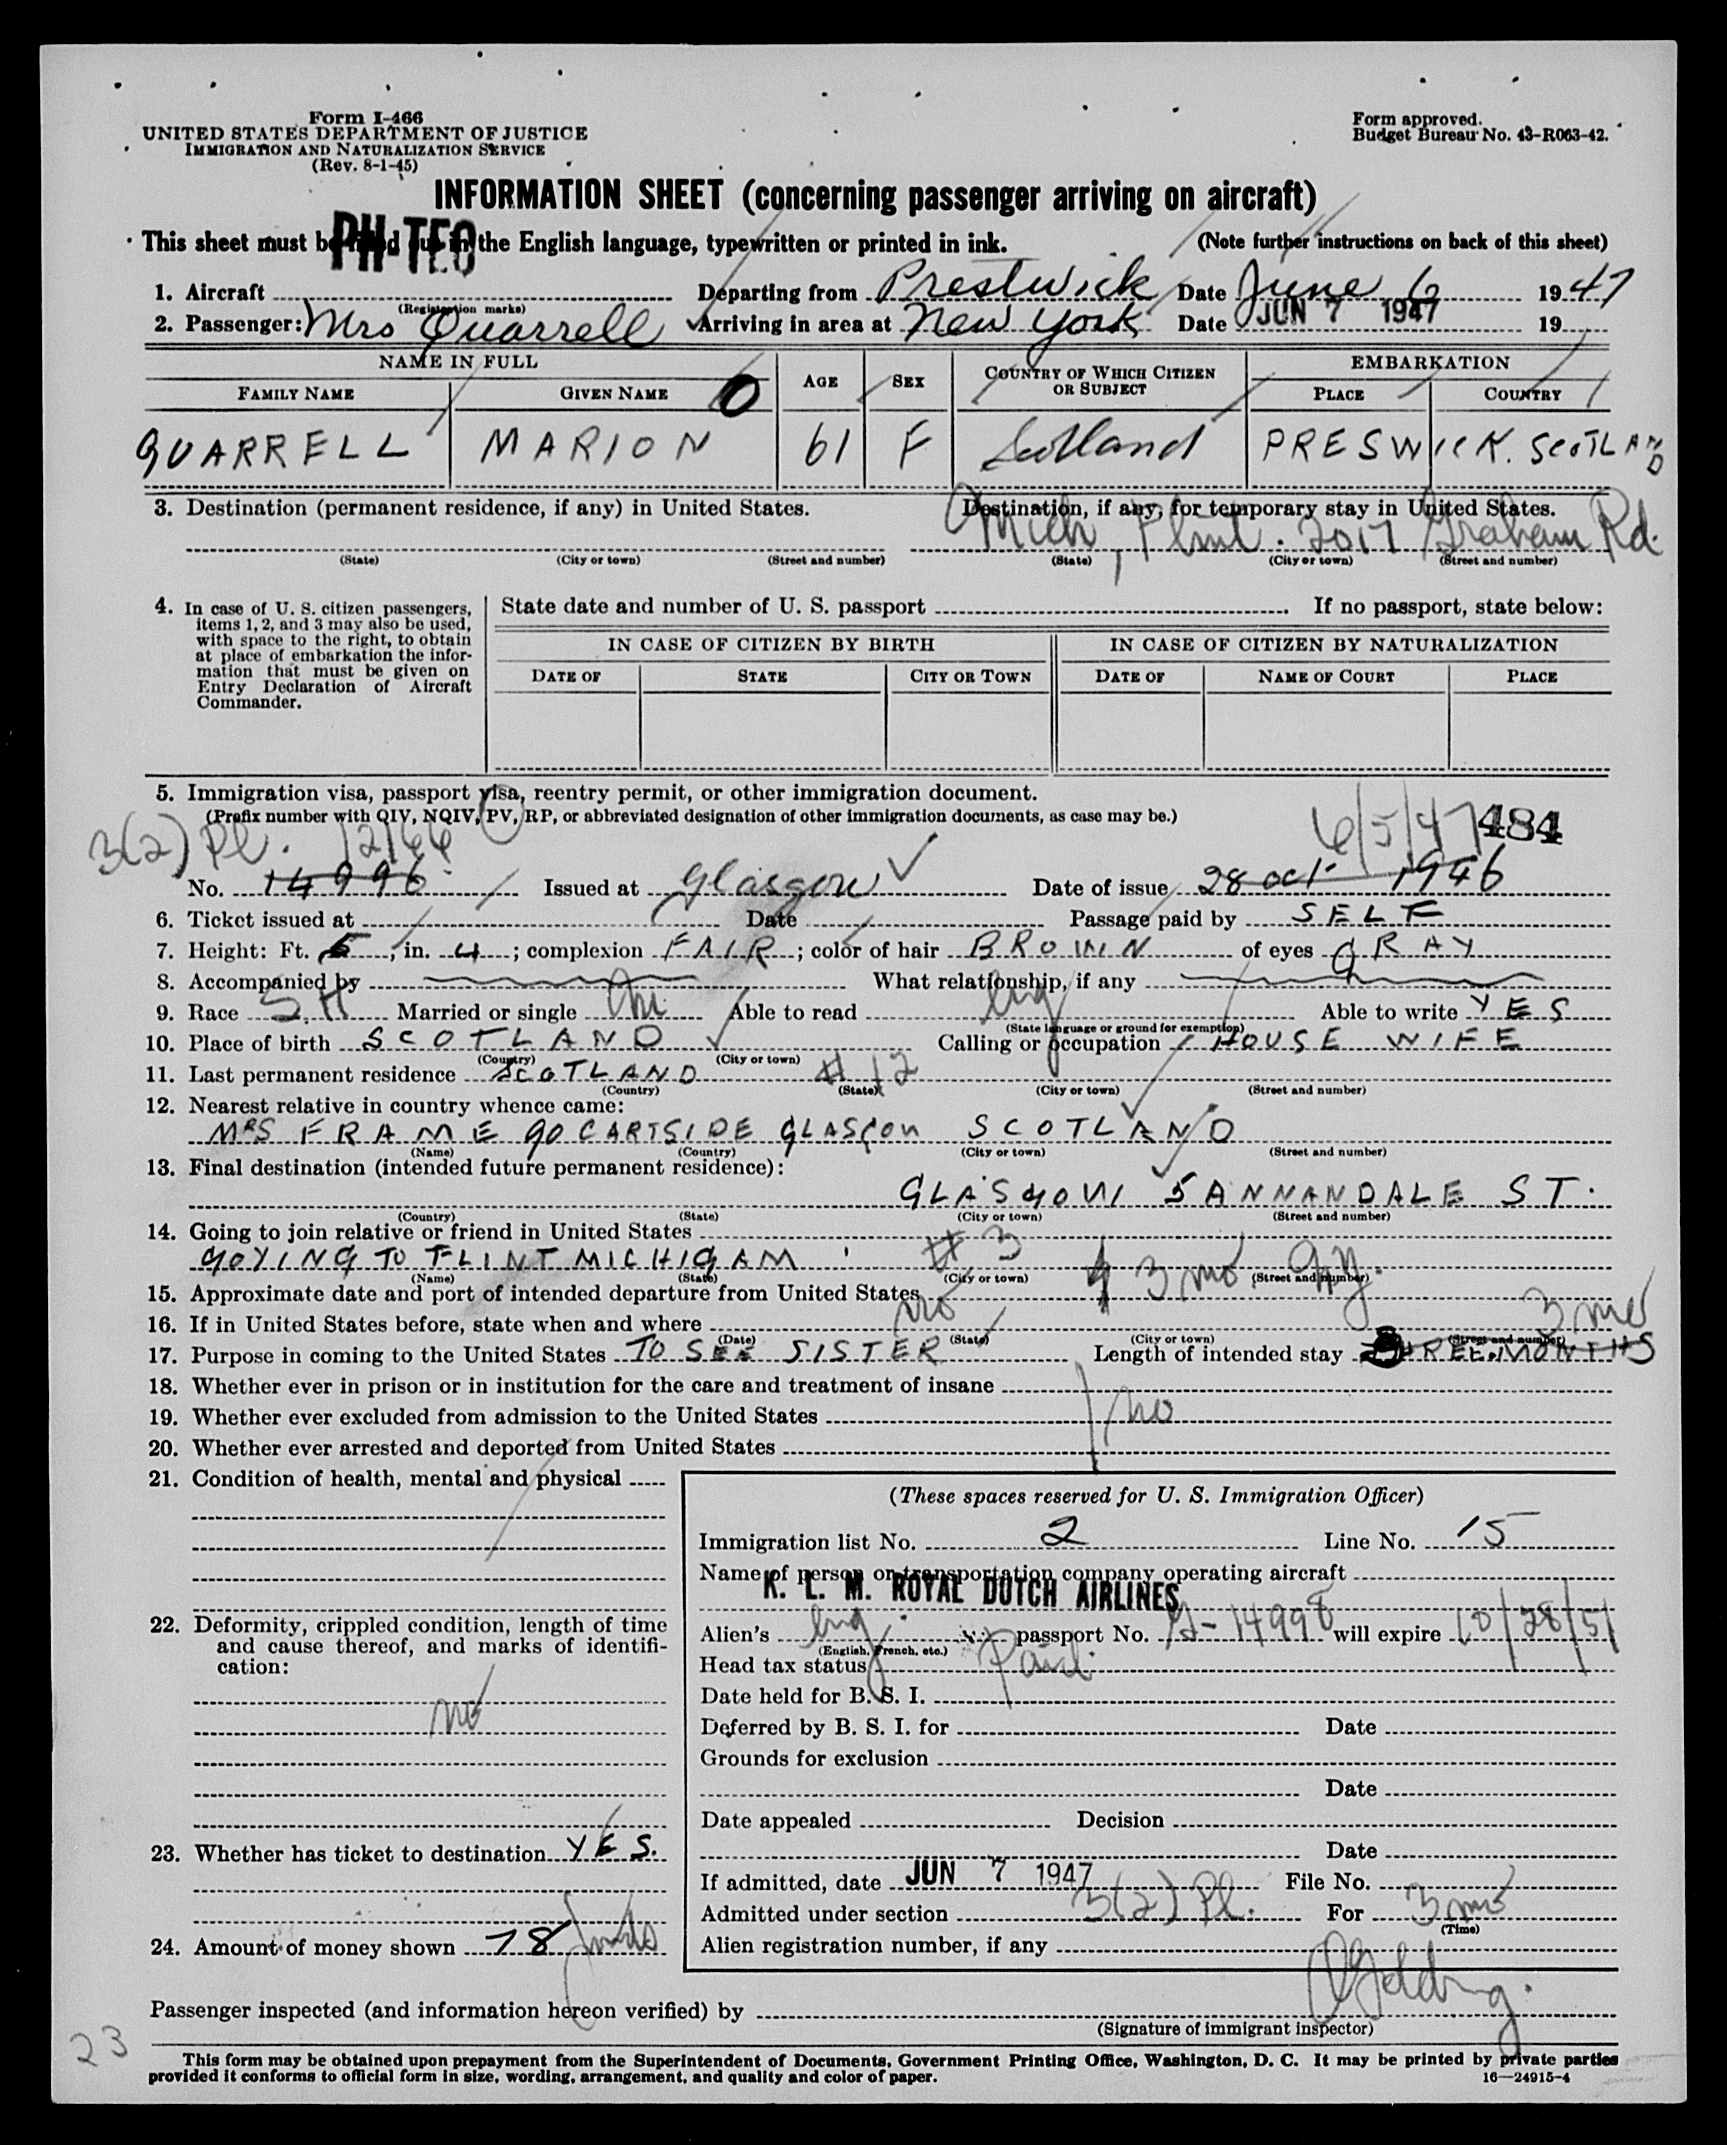 Form I-466
UNITED STATES DEPARTMENT OF JUSTICE
IMMIGRATION AND NATURALIZATION SERVICE
(Rev. 8-1-45)
Form approved.
Budget Bureau No. 43-R063-42.
INFORMATION SHEET (concerning passenger arriving on aircraft)
PH-TEO
This sheet must be filled out in the English language, typewritten or printed in ink. (Note further instructions on back of this sheet)
1. Aircraft (Registration marks) Departing from Prestwick Date June 6 1947
2. Passenger: Mrs Quarrell Arriving in area at New York Date JUN 7 1947 19
NAME IN FULL AGE SEX COUNTRY OF WHICH CITIZEN OR SUBJECT EMBARKATION
FAMILY NAME GIVEN NAME PLACE COUNTRY
QUARRELL MARION 61 F Scotland PRESWICK. SCOTLAND
3. Destination (permanent residence, if any) in United States. Destination, if any, for temporary stay in United States.
Mich, Flint. 2017 Graham Rd.
(State) (City or town) (Street and number) (State) (City or town) (Street and number)
4. In case of U. S. citizen passengers, items 1, 2, and 3 may also be used, with space to the right, to obtain at place of embarkation the information that must be given on Entry Declaration of Aircraft Commander.
State date and number of U. S. passport . If no passport, state below:
IN CASE OF CITIZEN BY BIRTH IN CASE OF CITIZEN BY NATURALIZATION
DATE OF STATE CITY OR TOWN DATE OF NAME OF COURT PLACE
5. Immigration visa, passport visa, reentry permit, or other immigration document.
(Prefix number with QIV, NQIV, PV, RP, or abbreviated designation of other immigration documents, as case may be.)
3(2) Pl. 12166 6/5/47 484
No. 14996 Issued at Glasgow Date of issue 28 Oct 1946
6. Ticket issued at Date Passage paid by SELF
7. Height: Ft. 5, in. 4; complexion FAIR; color of hair BROWN of eyes GRAY
8. Accompanied by What relationship, if any
9. Race S.H Married or single M Able to read Eng Able to write YES
(State language or ground for exemption)
10. Place of birth SCOTLAND Calling or occupation HOUSE WIFE
(Country) (City or town)
11. Last permanent residence SCOTLAND # 12
(Country) (State) (City or town) (Street and number)
12. Nearest relative in country whence came:
MRS FRAME 90 CARTSIDE GLASGOW SCOTLAND
(Name) (Country) (City or town) (Street and number)
13. Final destination (intended future permanent residence):
GLASGOW 5 ANNANDALE ST.
(Country) (State) (City or town) (Street and number)
14. Going to join relative or friend in United States
GOYING TO FLINT MICHIGAM # 3
(Name) (State) (City or town) (Street and number)
15. Approximate date and port of intended departure from United States 3 mo
16. If in United States before, state when and where no
(Date) (State) (City or town) (Street and number)
3 mo
17. Purpose in coming to the United States TO SEE SISTER Length of intended stay THREE MONTHS
18. Whether ever in prison or in institution for the care and treatment of insane
19. Whether ever excluded from admission to the United States no
20. Whether ever arrested and deported from United States
21. Condition of health, mental and physical
22. Deformity, crippled condition, length of time and cause thereof, and marks of identification:
no
23. Whether has ticket to destination YES.
24. Amount of money shown 78
(These spaces reserved for U. S. Immigration Officer)
Immigration list No. 2 Line No. 15
Name of person or transportation company operating aircraft
K. L. M. ROYAL DUTCH AIRLINES
Alien's Eng. passport No. 14998 will expire 10/28/51
(English, French, etc.)
Head tax status Paid
Date held for B. S. I.
Deferred by B. S. I. for Date
Grounds for exclusion
Date
Date appealed Decision
Date
If admitted, date JUN 7 1947 File No.
Admitted under section 3(2) Pl. For 3 mo
(Time)
Alien registration number, if any
Passenger inspected (and information hereon verified) by
(Signature of immigrant inspector)
23
This form may be obtained upon prepayment from the Superintendent of Documents, Government Printing Office, Washington, D. C. It may be printed by private parties
provided it conforms to official form in size, wording, arrangement, and quality and color of paper. 16—24915-4